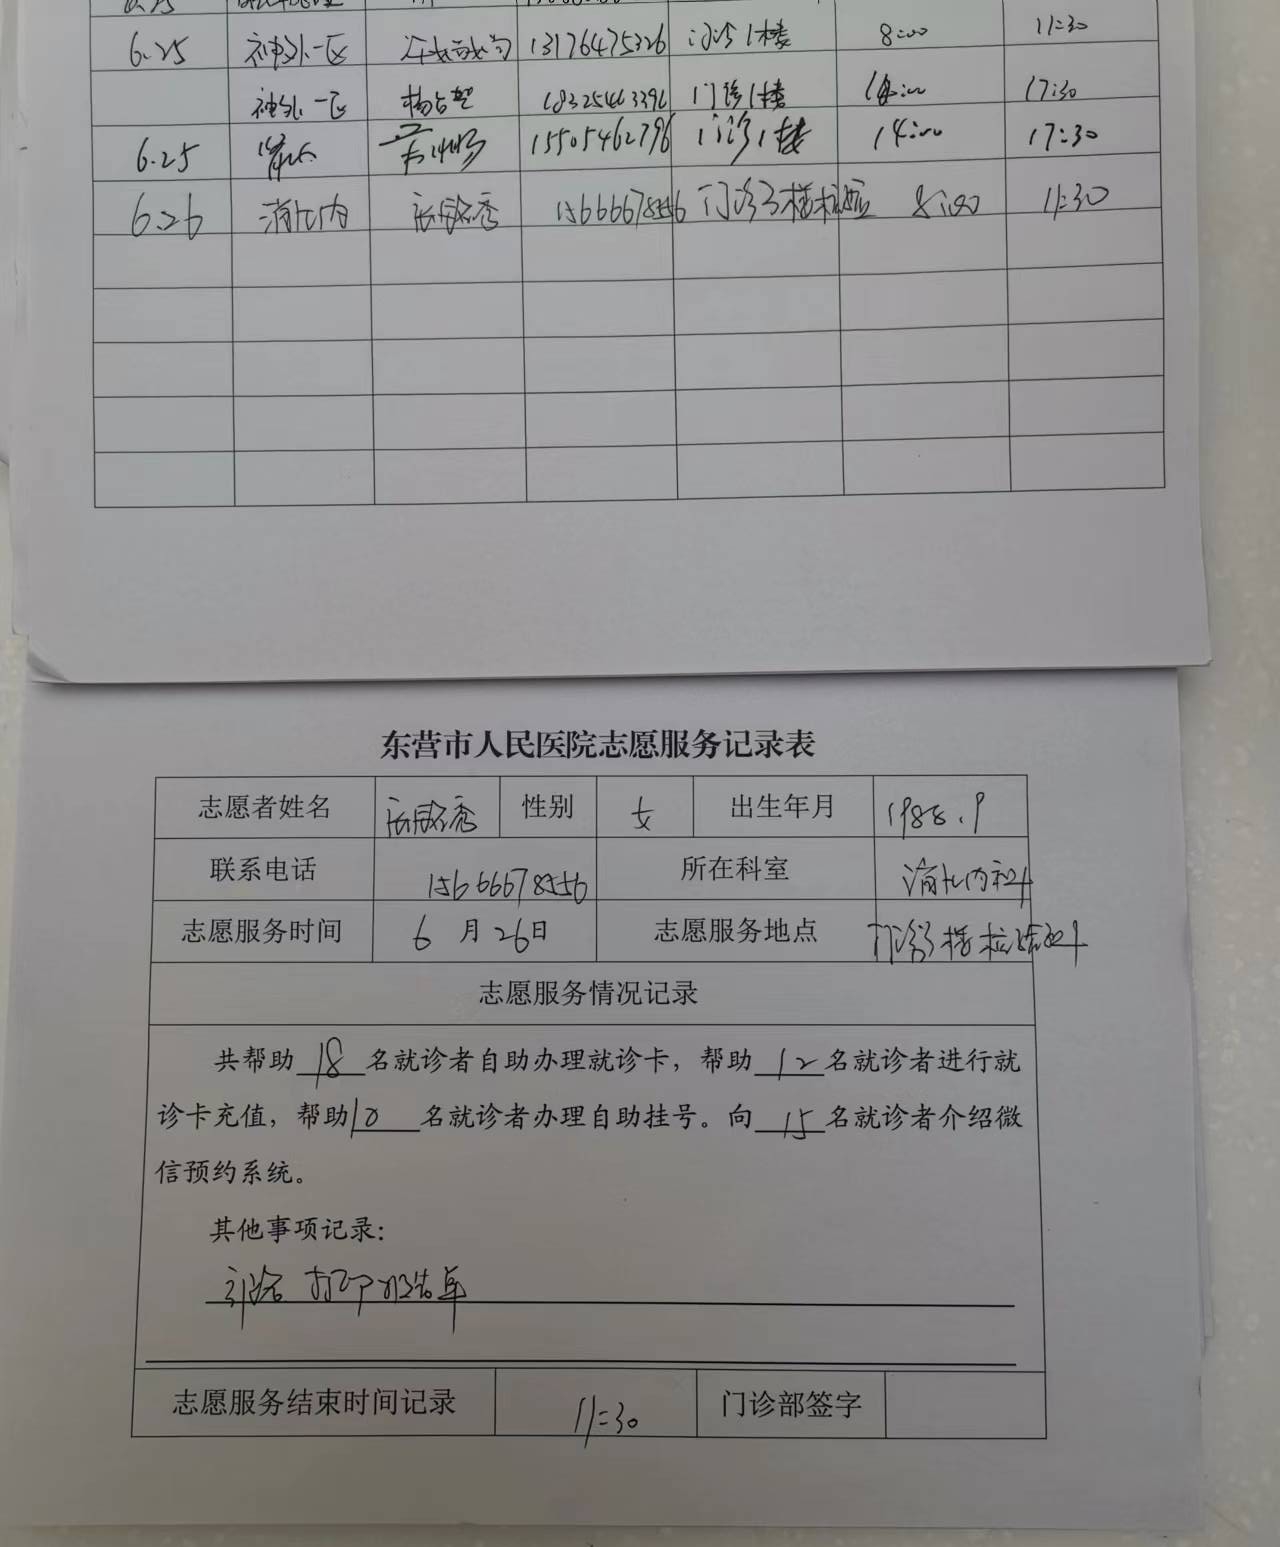 6.25 神外一区 13176475326 门诊1楼 8:00 11:30
神外一区 18325463396 门诊1楼 14:00 17:30
6.25 15505462796 门诊1楼 14:00 17:30
6.26 消化内 15666678556 门诊3楼检验 8:00 11:30
东营市人民医院志愿服务记录表
志愿者姓名 性别 女 出生年月 1988.9
联系电话 15666678556 所在科室 消化内科
志愿服务时间 6月26日 志愿服务地点 门诊3楼检验科
志愿服务情况记录
共帮助18名就诊者自助办理就诊卡，帮助12名就诊者进行就
诊卡充值，帮助10名就诊者办理自助挂号。向15名就诊者介绍微
信预约系统。
其他事项记录：
引路 打印报告单
志愿服务结束时间记录 11:30 门诊部签字